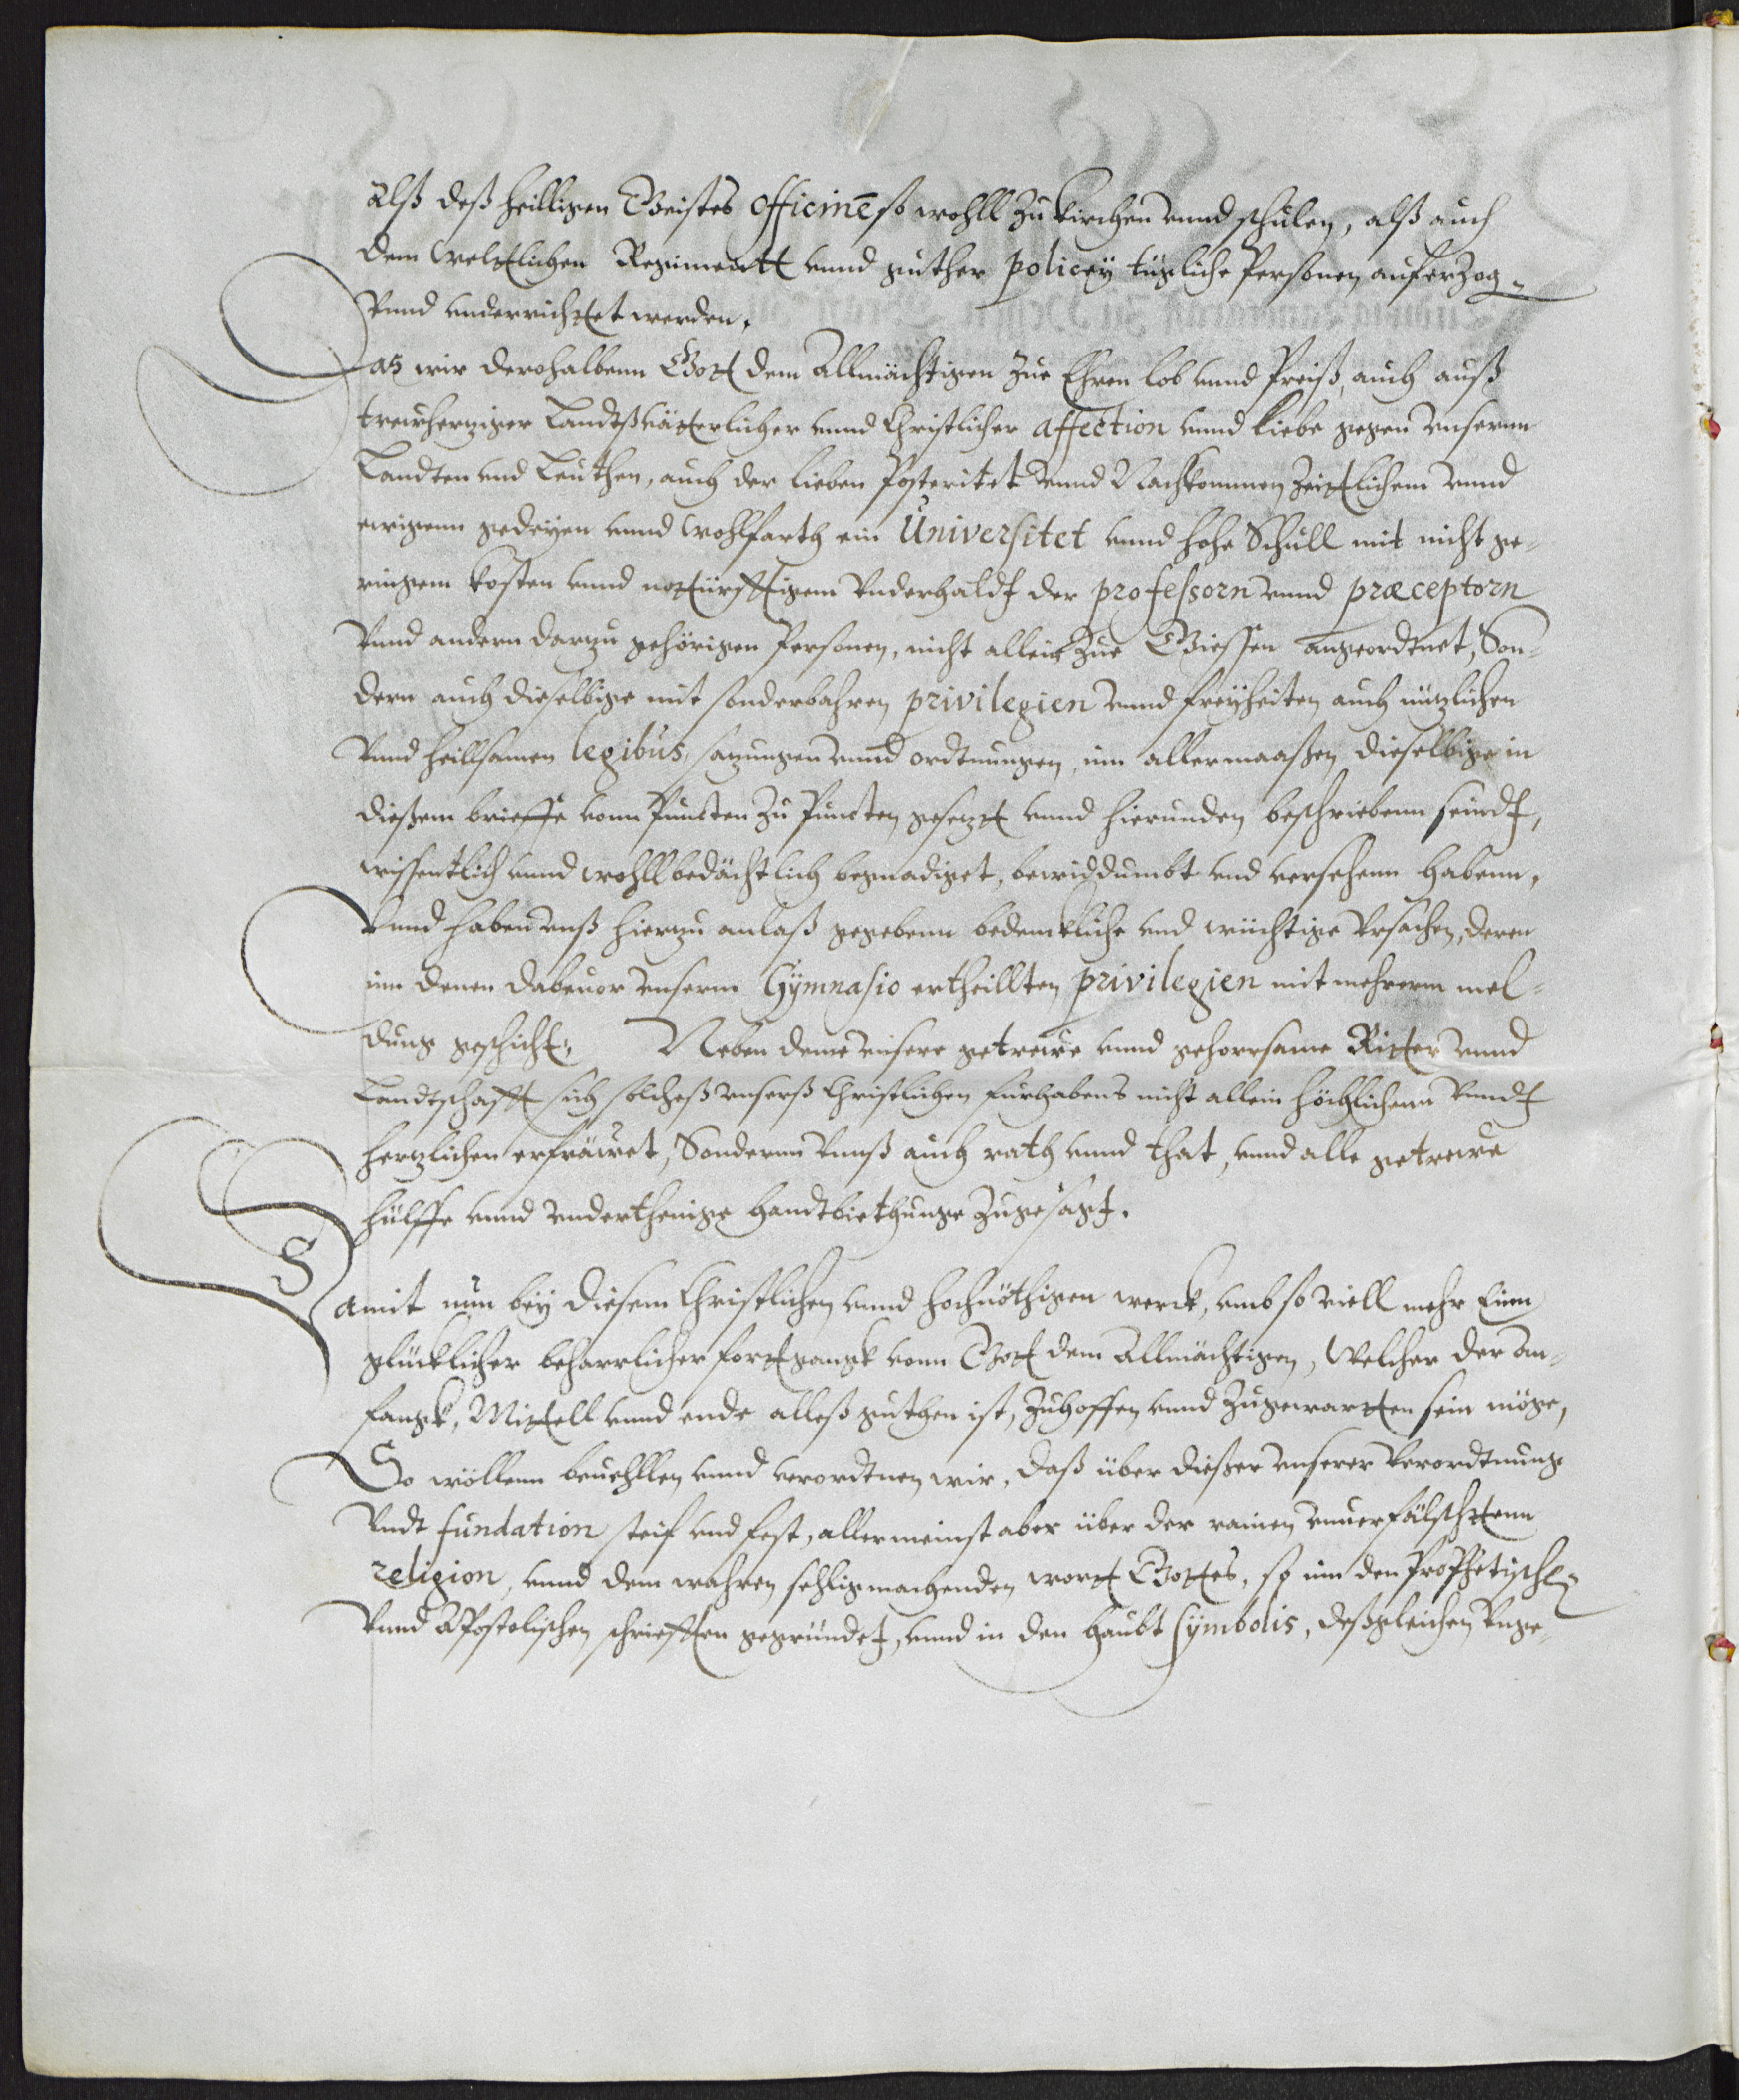 alß deß heilligen Geistes officinē so wohll zu kirchen vnnd schulen, alß auch
dem weltlichen Regimentt vnnd guther policeÿ tügliche Personen auferzog-
Vnnd vnderrichtet werden.
Das wir derohalbenn Gott dem Allmächtigen zue Ehren lob vnnd Preiß, auch auß
trewherziger Landtßväterlicher vnnd Christlicher affection vnnd liebe gegen vnsernn
Landten vnd Leuthen, auch der lieben Posteritet vnnd Nachkommen zeittlichem vnnd
ewigenn gedeyen vnnd wohlfarth ein Universitet vnnd hohe Schull mit nicht ge-
ringem kosten vnnd notturfftigem Vnderhaldt der professorn vnnd præceptorn
Vnnd andern darzu gehörigen Personen, nicht allein zue Giessen angeordtnet, Son-
dern auch dieselbige mit sonderbahren privilegien vnnd freÿheiten auch nützlichen
Vnnd heillsamen legibus, satzungen vnnd ordtnungen, inn allermaaßen dieselbige in
dießem brieffe vonn Puncten zu Puncten gesetzt vnnd hierunden beschriebenn seindt,
wissentlich vnnd wohllbedächtlich begnadiget, bewiddumbt vnd versehenn habenn,
Vnnd haben vnß hierzu anlaß gegebenn bedenckliche vnd wüchtige Vrsachen, deren
inn denen dabeuor vnserm Gÿmnasio ertheillten privilegien mit mehrerm mel-
dung geschicht, Neben deme vnsere getrewe vnnd gehorrsame Ritter vnnd
Landtschafft sich solcheß vnserß Christlichen furhabens nicht allein höchlichenn Vnndt
hertzlichen erfräwet, Sondernn Vnnß auch rath vnnd that, vnnd alle getrewe
hülffe vnnd vnderthenige handtbiethunge zugesagt.
Damit nun beÿ diesem Christlichen vnnd hochnöthigen werck, vmb so viell mehr Einn
glücklicher beharrlicher fortgangk vonn Gott dem Allmächtigen, Welcher der An-
fangk, Mittell vnnd ende alleß guthen ist, zuhoffen vnnd zugewartten sein möge,
So wöllenn beuehllen vnnd verordtnen wir, daß über dießer vnserer Verordtnunge
Vndt fundation steif vnd fest, allermeinst aber über der rainen vnuerfälschtenn
religion, vnnd dem wahren sehligmachenden wortt Gottes, so inn den Prophetischē
Vnnd Apostolischen schrifften gegründet, vnnd in den haubt sÿmbolis, deßgleichen Vnge-